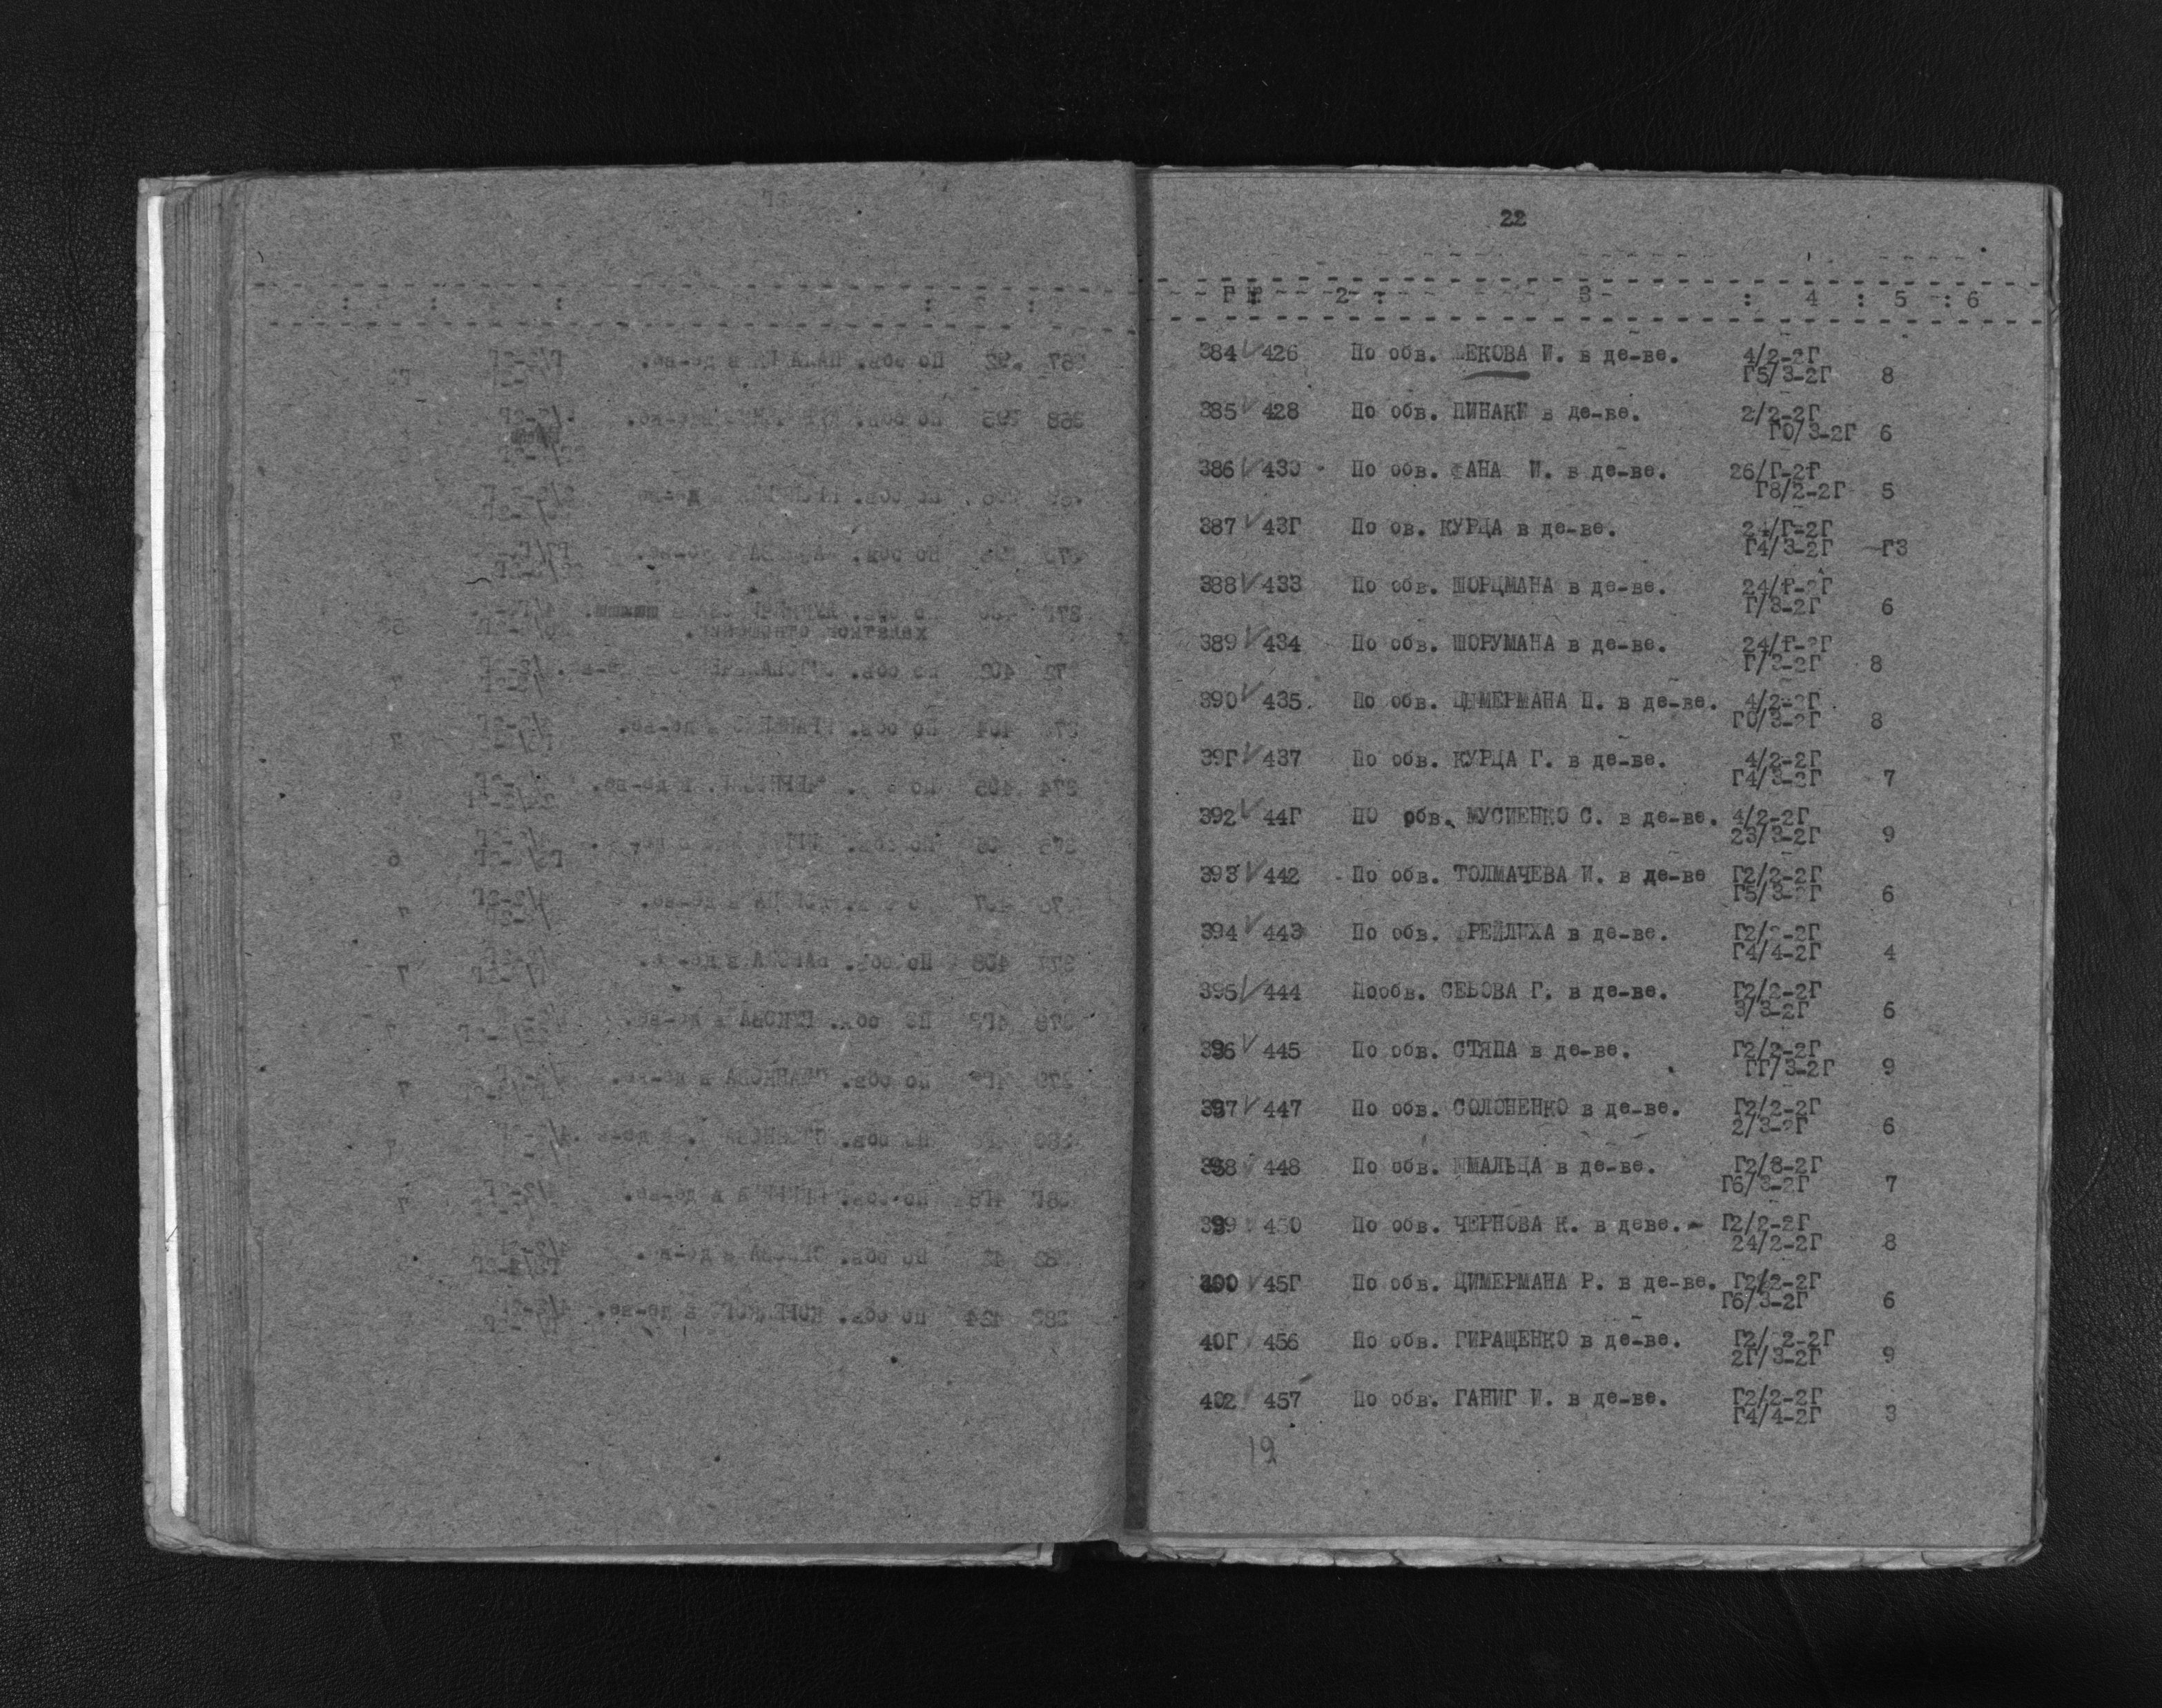 22
2 : 3 : 4 : 5 : 6
384 426 По обв. ШЕКОВА И. в де-ве. 4/2-2Г
Г5/3-2Г 8
385 428 По обв. ПИНАКИ в де-ве. 2/2-2Г
Г0/3-2Г 6
386 430 По обв. И. в де-ве. 26/Г-2Г
Г8/2-2Г 5
387 43Г По ов. КУРЦА в де-ве. 24/Г-2Г
Г4/3-2Г Г3
388 433 По обв. ШОРЦМАНА в де-ве. 24/Г-2Г
Г/3-2Г 6
389 434 По обв. ШОРУМАНА в де-ве. 24/Г-2Г
Г/3-2Г 8
390 435. По обв. ЦИМЕРМАНА П. в де-ве. 4/2-2Г
Г0/3-2Г 8
39Г 437 По обв. КУРЦА Г. в де-ве. 4/2-2Г
Г4/3-2Г 7
392 44Г ПО обв. МУСИЕНКО С. в де-ве. 4/2-2Г
23/3-2Г 9
393 442 По обв. ТОЛМАЧЕВА И. в де-ве Г2/2-2Г
Г5/3-2Г 6
394 443 По обв. ФРЕЙЛИХА в де-ве. Г2/2-2Г
Г4/4-2Г 4
395 444 Пообв. СЕВОВА Г. в де-ве. Г2/2-2Г
3/3-2Г 6
396 445 По обв. СТЯПА в де-ве. Г2/2-2Г
ГГ/3-2Г 9
397 447 По обв. СОЛОНЕНКО в де-ве. Г2/2-2Г
2/3-2Г 6
398 448 По обв. ШМАЛЬЦА в де-ве. Г2/8-2Г
Г6/3-2Г 7
399 450 По обв. ЧЕРНОВА К. в деве. Г2/2-2Г
24/2-2Г 8
400 45Г По обв. ЦИМЕРМАНА Р. в де-ве. Г2/2-2Г
Г6/3-2Г 6
40Г 456 По обв. ГИРАЩЕНКО в де-ве. Г2/ 2-2Г
2Г/3-2Г 9
402 457 По обв. ГАНИГ И. в де-ве. Г2/2-2Г
Г4/4-2Г 3
19